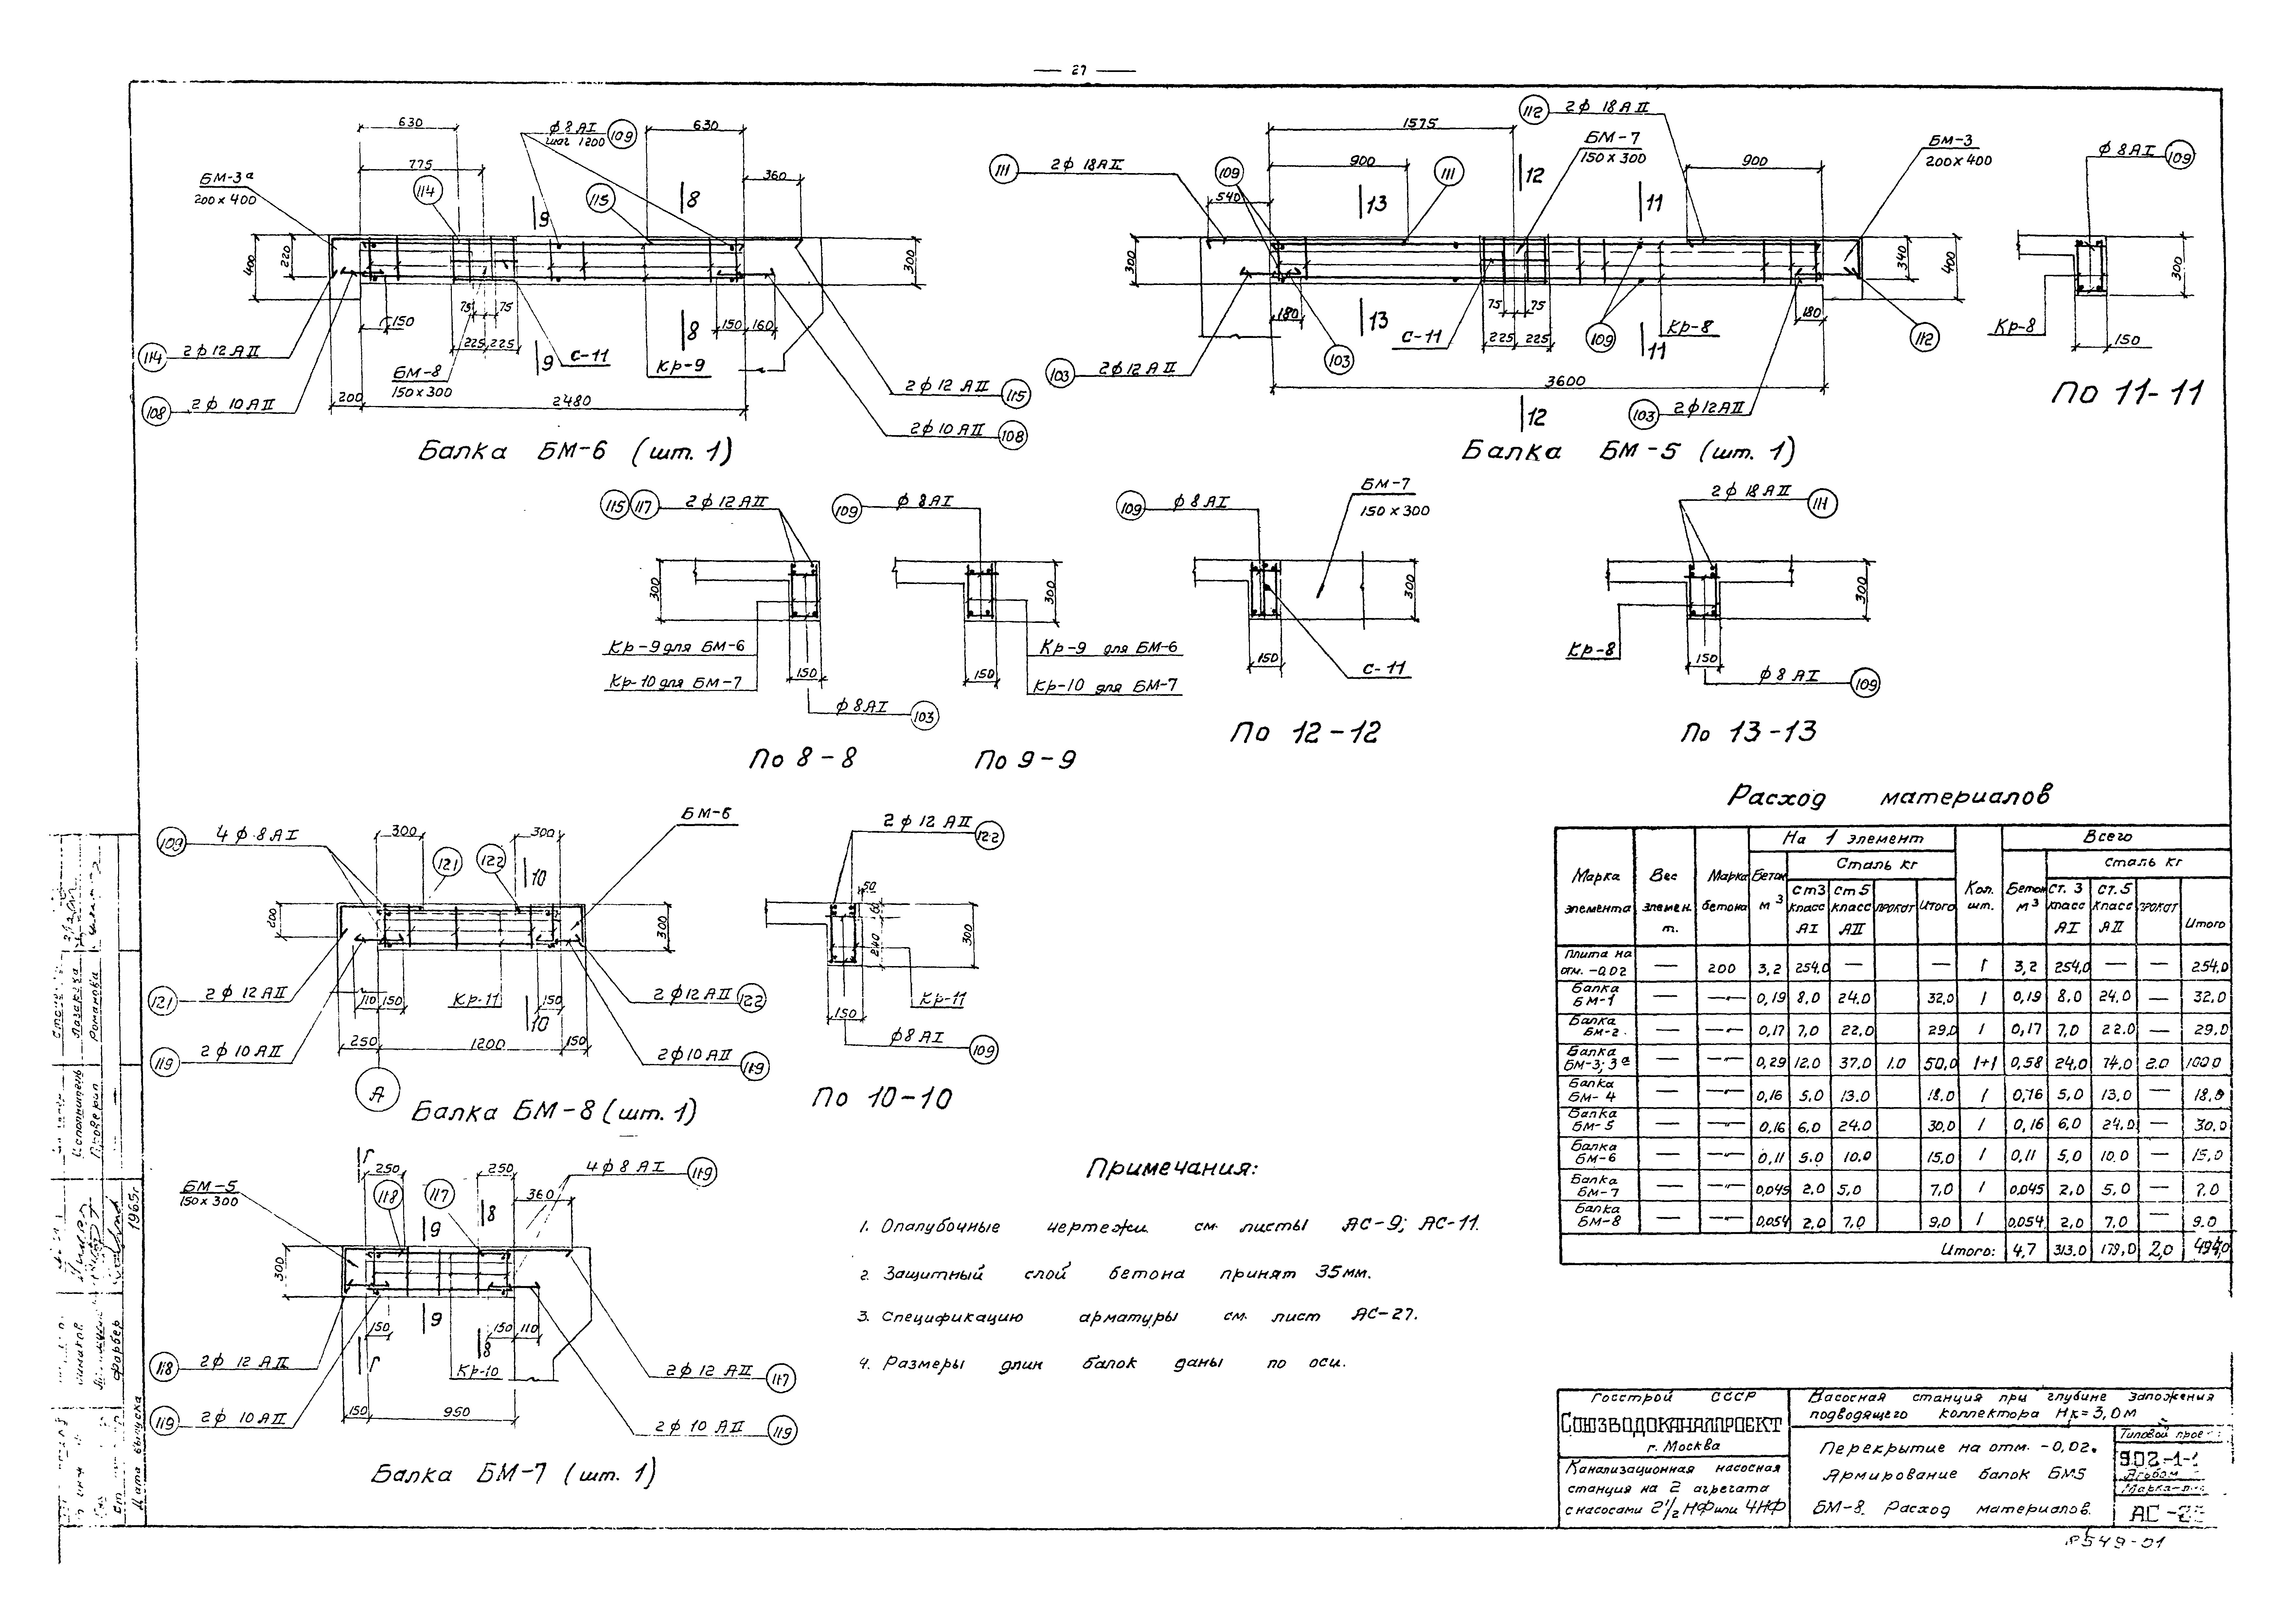 — 27 —
630
Ф 8 АI
шаг 1200
109
630
775
360
БМ-3а
200 х 400
114
115
9
8
400
220
300
150
75
75
150
160
225
225
9
8
С-11
Кр-9
114
2ф 12 АII
БМ-8
150 х 300
108
2ф 10 АII
200
2480
2ф 12 АII
115
2ф 10 АII
108
Балка БМ-6 (шт. 1)
112
2ф 18 АII
1575
БМ-7
150 х 300
БМ-3
200 х 400
111
2ф 18 АII
109
900
111
12
900
540
13
11
300
340
400
180
13
75
75
С-11
225
225
109
Кр-8
11
180
112
103
103
2ф 12 АII
3600
12
103
2ф 12 АII
Балка БМ-5 (шт. 1)
ф 8 АI
109
300
Кр-8
150
По 11-11
115
117
2ф 12 АII
300
Кр-9 для БМ-6
Кр-10 для БМ-7
150
ф 8 АI
103
По 8-8
109
ф 8 АI
300
Кр-9 для БМ-6
Кр-10 для БМ-7
150
По 9-9
109
ф 8 АI
БМ-7
150 х 300
300
150
С-11
По 12-12
2ф 18 АII
111
300
Кр-8
150
ф 8 АI
109
По 13-13
109
4ф 8 АI
300
300
БМ-6
121
122
10
200
300
121
2ф 12 АII
110
150
Кр-11
150
10
2ф 12 АII
122
119
2ф 10 АII
250
1200
150
2ф 10 АII
119
А
Балка БМ-8 (шт. 1)
2 ф 12 АII
122
50
60
240
300
Кр-11
150
ф 8 АI
109
По 10-10
Г
250
250
4ф 8 АI
119
БМ-5
150 х 300
118
117
360
9
8
300
150
9
150
110
8
Г
Кр-10
118
2ф 12 АII
2ф 12 АII
117
119
2ф 10 АII
150
950
2ф 10 АII
119
Балка БМ-7 (шт. 1)
Примечания:
1. Опалубочные чертежи см. листы АС-9; АС-11.
2. Защитный слой бетона принят 35мм.
3. Спецификацию арматуры см. лист АС-27.
4. Размеры длин балок даны по оси.
Расход материалов
Марка элемента
Вес элемен. т.
Марка бетона
На 1 элемент
Бетон м3
Сталь кг
Ст 3 класс АI
Ст 5 класс АII
прокат
Итого
Кол. шт.
Всего
Бетон м3
Сталь кг
Ст. 3 класс АI
Ст. 5 класс АII
прокат
Итого
Плита на отм. -0.02 — 200 3,2 254,0 — — 1 3,2 254,0 — — 254,0
Балка БМ-1 — —"— 0,19 8,0 24.0 32,0 1 0,19 8,0 24.0 — 32.0
Балка БМ-2 — —"— 0,17 7,0 22,0 29,0 1 0,17 7,0 22.0 — 29.0
Балка БМ-3; 3а — —"— 0,29 12.0 37,0 1.0 50,0 1+1 0,58 24,0 74.0 2.0 100.0
Балка БМ-4 — —"— 0,16 5.0 13.0 18.0 1 0,16 5,0 13,0 — 18,0
Балка БМ-5 — —"— 0,16 6,0 24.0 30,0 1 0,16 6,0 24,0 — 30,0
Балка БМ-6 — —"— 0,11 5.0 10.0 15,0 1 0,11 5,0 10.0 — 15,0
Балка БМ-7 — —"— 0,045 2,0 5,0 7,0 1 0,045 2,0 5.0 — 7.0
Балка БМ-8 — —"— 0,054 2,0 7,0 9,0 1 0,054 2,0 7,0 — 9.0
Итого: 4,7 313.0 179,0 2,0 494,0
Госстрой СССР
СОЮЗВОДОКАНАЛПРОЕКТ
г. Москва
Канализационная насосная
станция на 2 агрегата
с насосами 2 1/2 НФ или 4НФ
Насосная станция при глубине заложения
подводящего коллектора Нк=3,0м
Перекрытие на отм. -0,02.
Армирование балок БМ5
БМ-8. Расход материалов.
Типовой прое
902-1-1
Альбом
АС-
8549-01
Исполнитель
Проверил
Романова
Фарбер
Дата выпуска
1965г